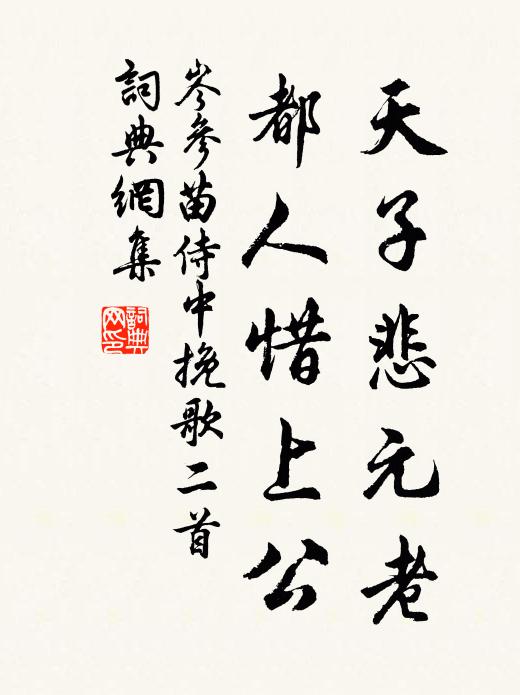 天子悲元老
都人惜上公
岑參苗侍中挽歌二首
詞典網集
詞典
网印